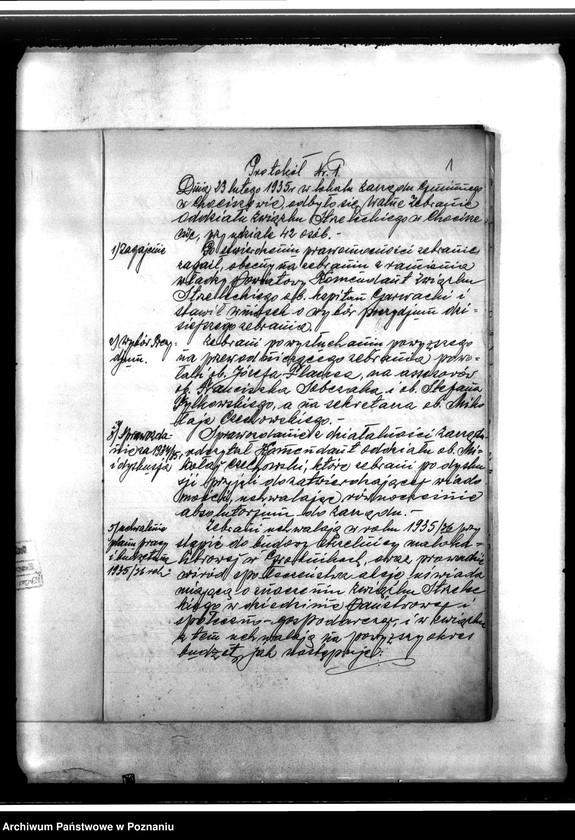 Protokół Nr. 1.
1
Dnia 23 lutego 1935r w lokalu Zarządu Gminnego
w Chociszewie, odbyło się walne zebranie
oddziału Związku Strzeleckiego w Chocisze
wie, przy udziale 42 osób. -
1) Zagajenie
Po stwierdzeniu prawomocności zebranie
zagaił, obecny na zebraniu z ramienia
władzy Powiatowy Komendant Związku
Strzeleckiego ob. kapitan Czerwacki i
stawił wniosek o wybór prezydjum dzi-
siejszego zebrania.
2) Wybór Prezy-
djum.
Zebrani po wysłuchaniu powyższego
na przewodniczącego zebrania powo-
łali ob. Józefa, na asesorów
ob. Franciszka Sobczaka i ob. Stefana
Rylkowskiego, a na sekretarza ob. Miko
łaja Czechowskiego. -
3) Sprawozda-
nie za 1934/35
i dyskusja
Sprawozdanie z działalności zarządu
odczytał Komendant oddziału ob. Mi-
kołaj Czechowski, które zebrani po dysku-
sji przyjęli do zatwierdzającej wiado
mości, uchwalając równocześnie
absolutorjum dla zarządu. -
5) uchwalenie
planu pracy
i budżetu na
1935/36 rok
Zebrani uchwalają w roku 1935/36 przy
stąpić do budowy strzelnicy małoka-
librowej w, oraz prowadzić
wśród społeczeństwa akcję uświada
miającą o znaczeniu Związku Strzelec
kiego w dziedzinie Państwowej i
społeczno-gospodarczej, i w związku
z tem uchwalają na powyższy okres
budżet, jak następuje:
Archiwum Państwowe w Poznaniu